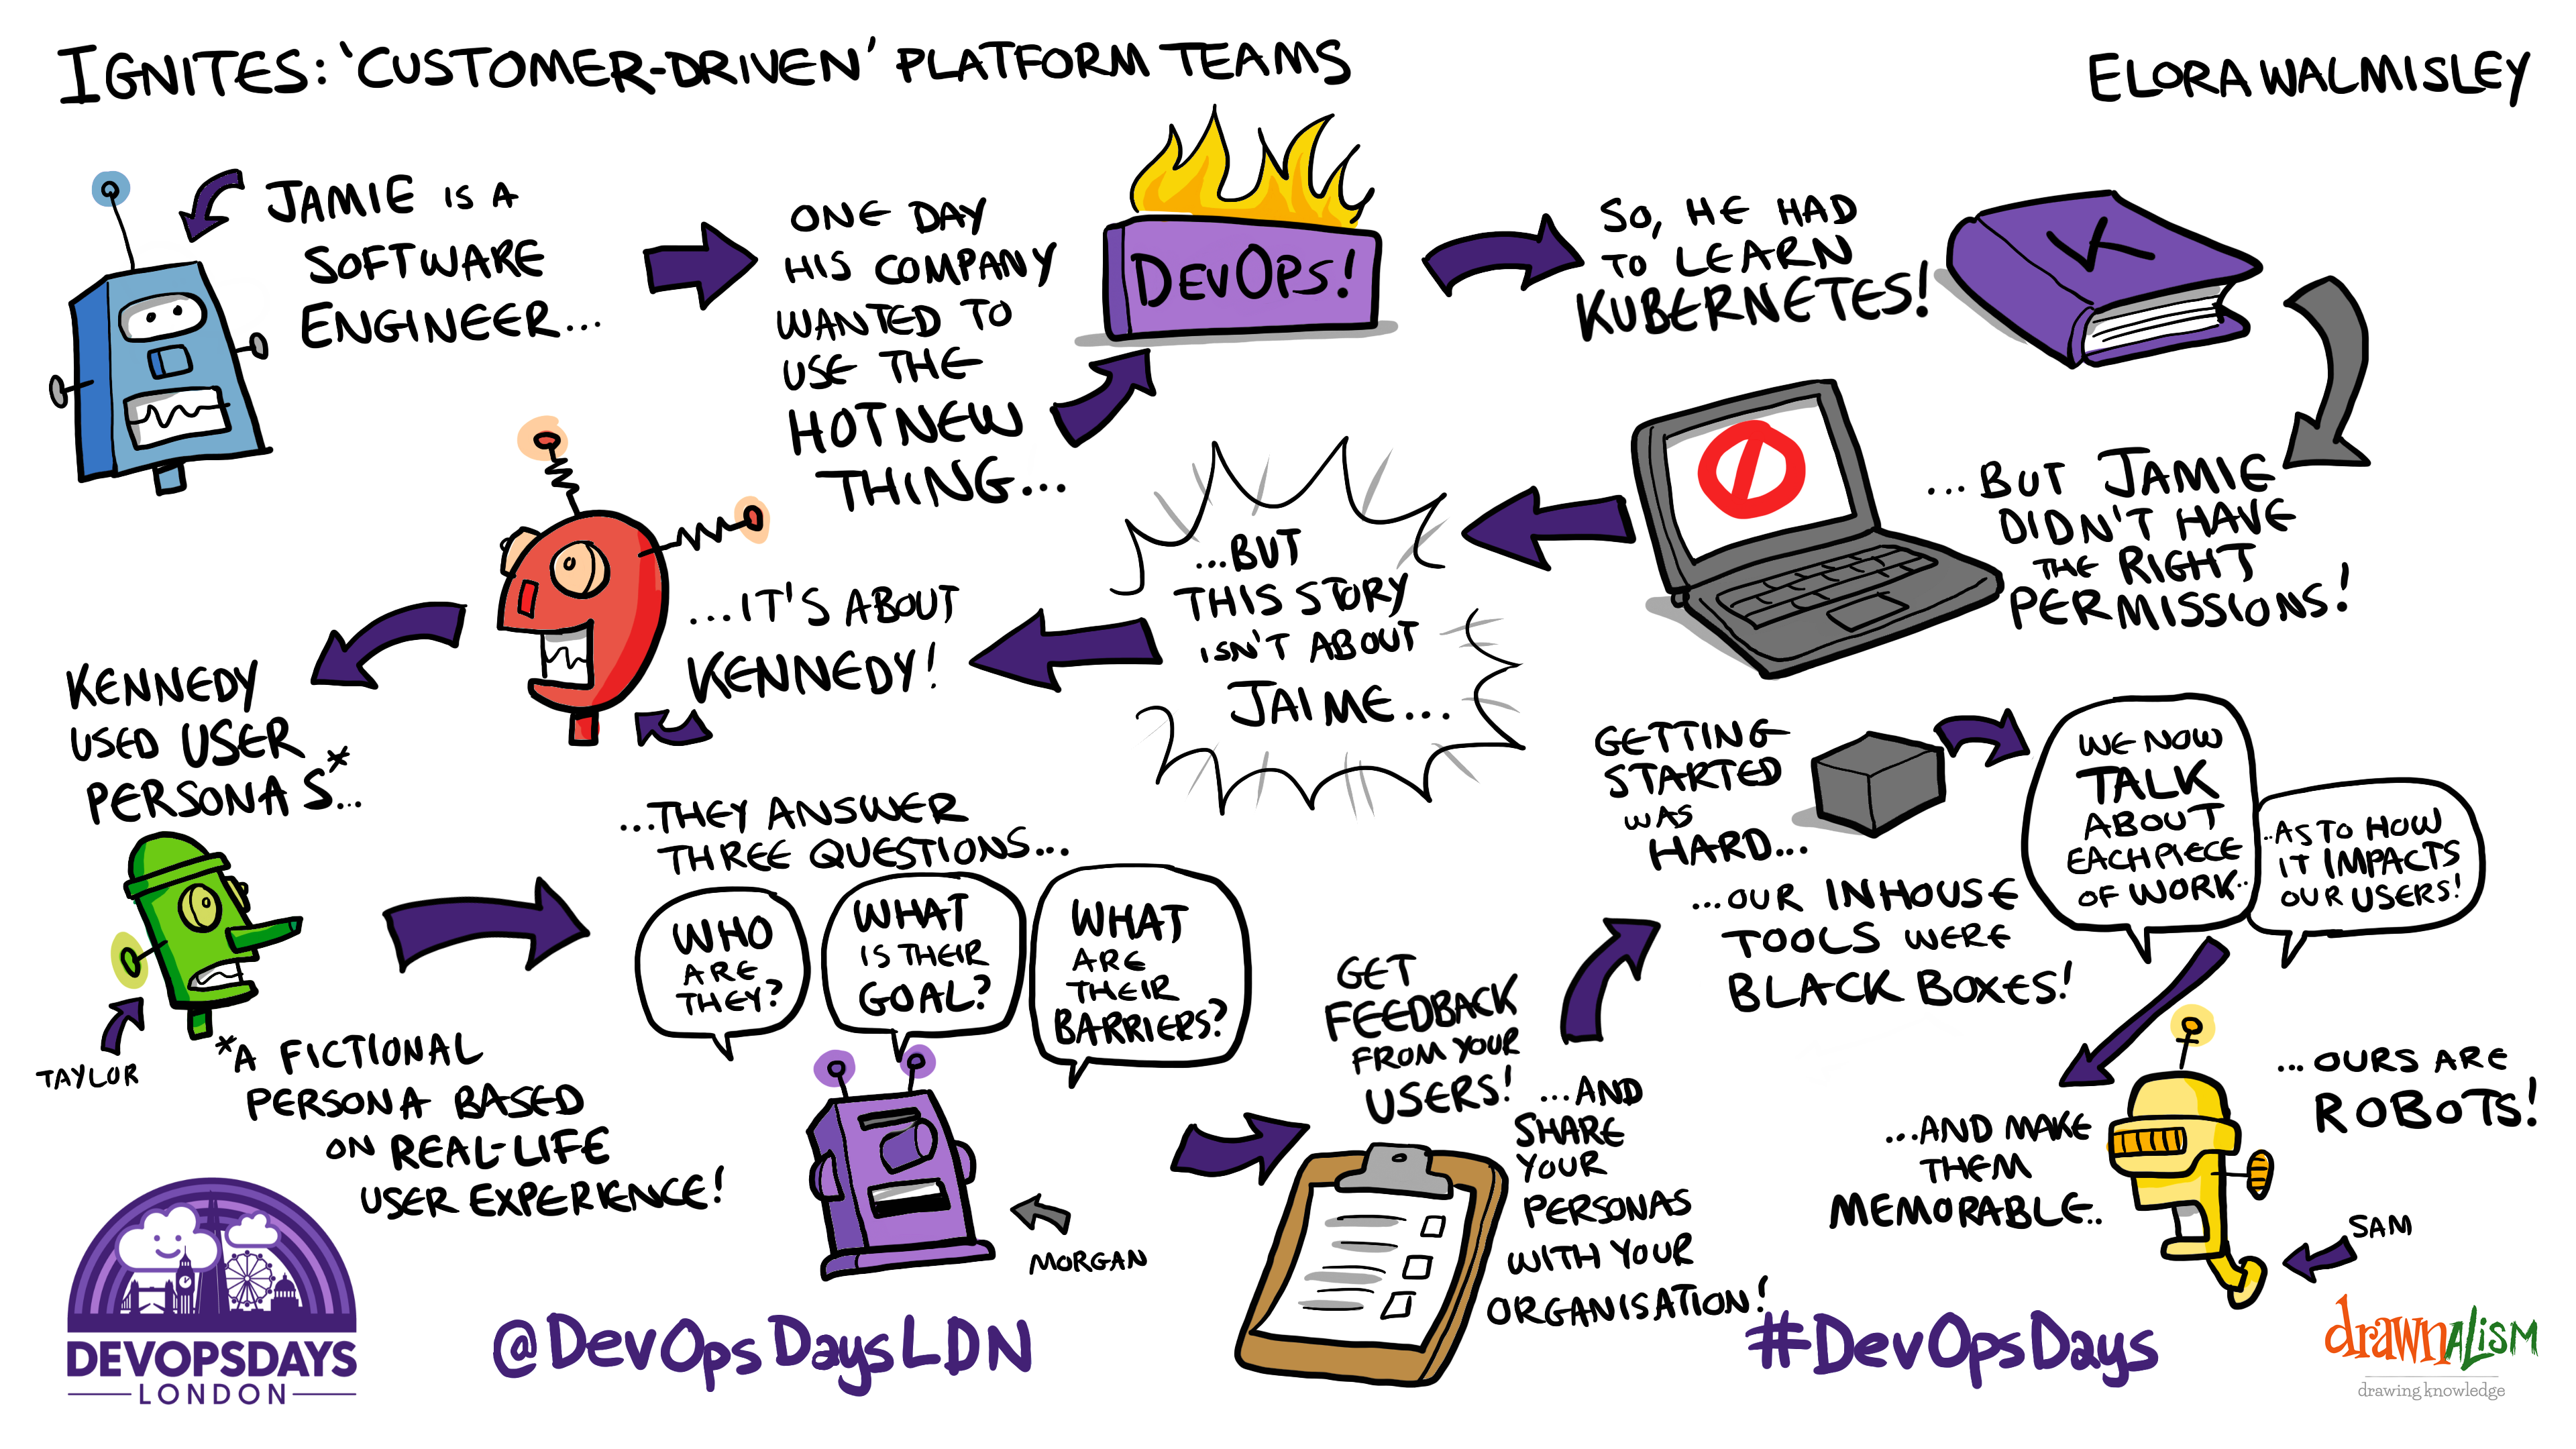 IGNITES: 'CUSTOMER-DRIVEN' PLATFORM TEAMS
ELORA WALMISLEY
JAMIE IS A
SOFTWARE
ENGINEER...
ONE DAY
HIS COMPANY
WANTED TO
USE THE
HOT NEW
THING...
DEVOPS!
SO, HE HAD
TO LEARN
KUBERNETES!
K
...BUT JAMIE
DIDN'T HAVE
THE RIGHT
PERMISSIONS!
...BUT
THIS STORY
ISN'T ABOUT
JAIME...
...IT'S ABOUT
KENNEDY!
KENNEDY
USED USER
PERSONAS*...
TAYLOR
*A FICTIONAL
PERSONA BASED
ON REAL-LIFE
USER EXPERIENCE!
...THEY ANSWER
THREE QUESTIONS...
WHO
ARE
THEY?
WHAT
IS THEIR
GOAL?
WHAT
ARE
THEIR
BARRIERS?
MORGAN
GET
FEEDBACK
FROM YOUR
USERS!
...AND
SHARE
YOUR
PERSONAS
WITH YOUR
ORGANISATION!
GETTING
STARTED
WAS
HARD...
...OUR INHOUSE
TOOLS WERE
BLACK BOXES!
WE NOW
TALK
ABOUT
EACH PIECE
OF WORK..
..AS TO HOW
IT IMPACTS
OUR USERS!
...AND MAKE
THEM
MEMORABLE..
...OURS ARE
ROBOTS!
SAM
DEVOPSDAYS
LONDON
@DevOpsDaysLDN
#DevOpsDays
drawnalism
drawing knowledge